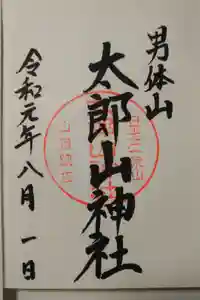 男体山
太郎山神社
令和元年八月一日